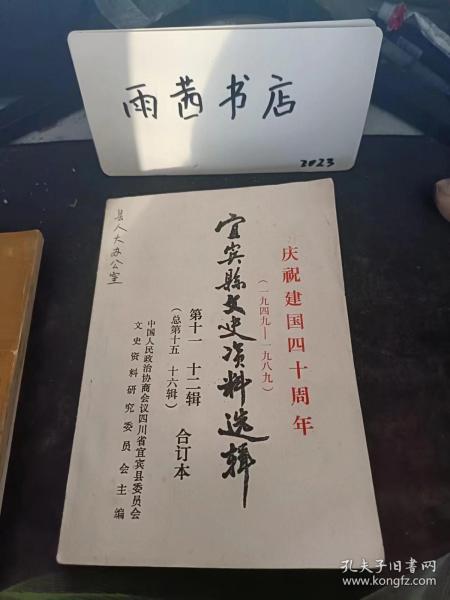 雨茜书店
2023
庆祝建国四十周年
(一九四九—一九八九)
宜宾縣文史资料选辑
第十一 十二辑 合订本
(总第十五 十六辑)
中国人民政治协商会议四川省宜宾县委员会
文史资料研究委员会主编
县人大办公室
孔夫子旧书网
www.kongfz.com